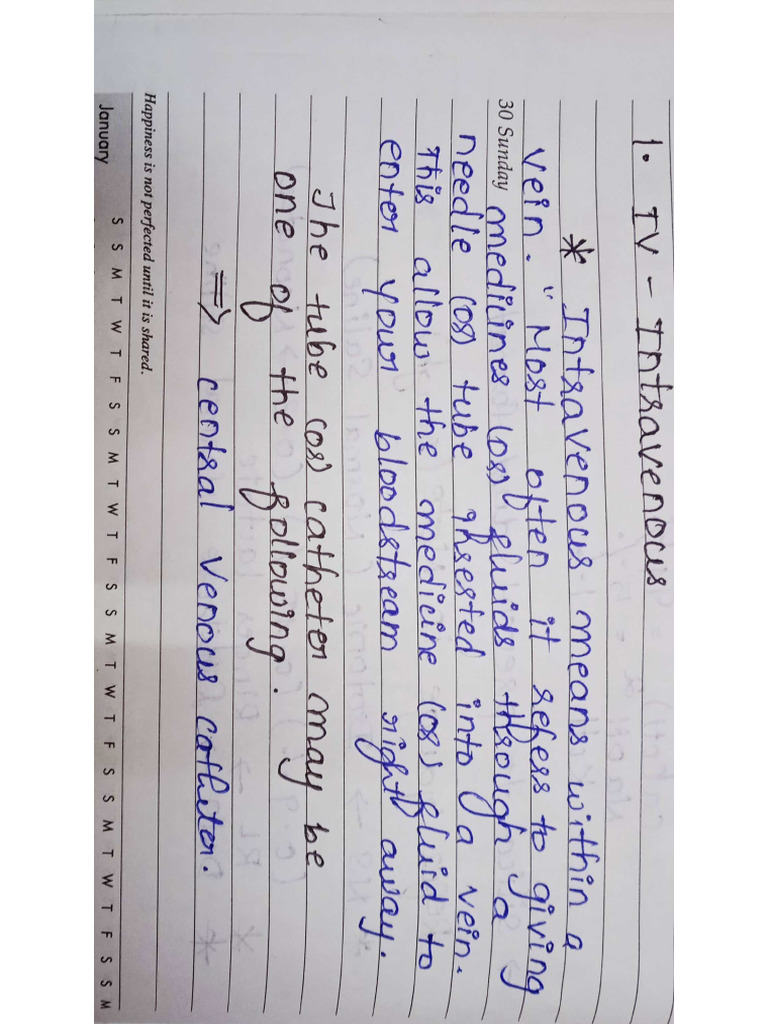 1. IV - Intravenous
* Intravenous means within a
vein. "Most often it refers to giving
30 Sunday medicines (or) fluids through a
needle (or) tube insested into a vein.
This allow the medicine (or) fluid to
enter your bloodstream right away.
The tube (or) catheter may be
one of the following.
⇒ central venous catheter.
Happiness is not perfected until it is shared.
January S S M T W T F S S M T W T F S S M T W T F S S M T W T F S S M